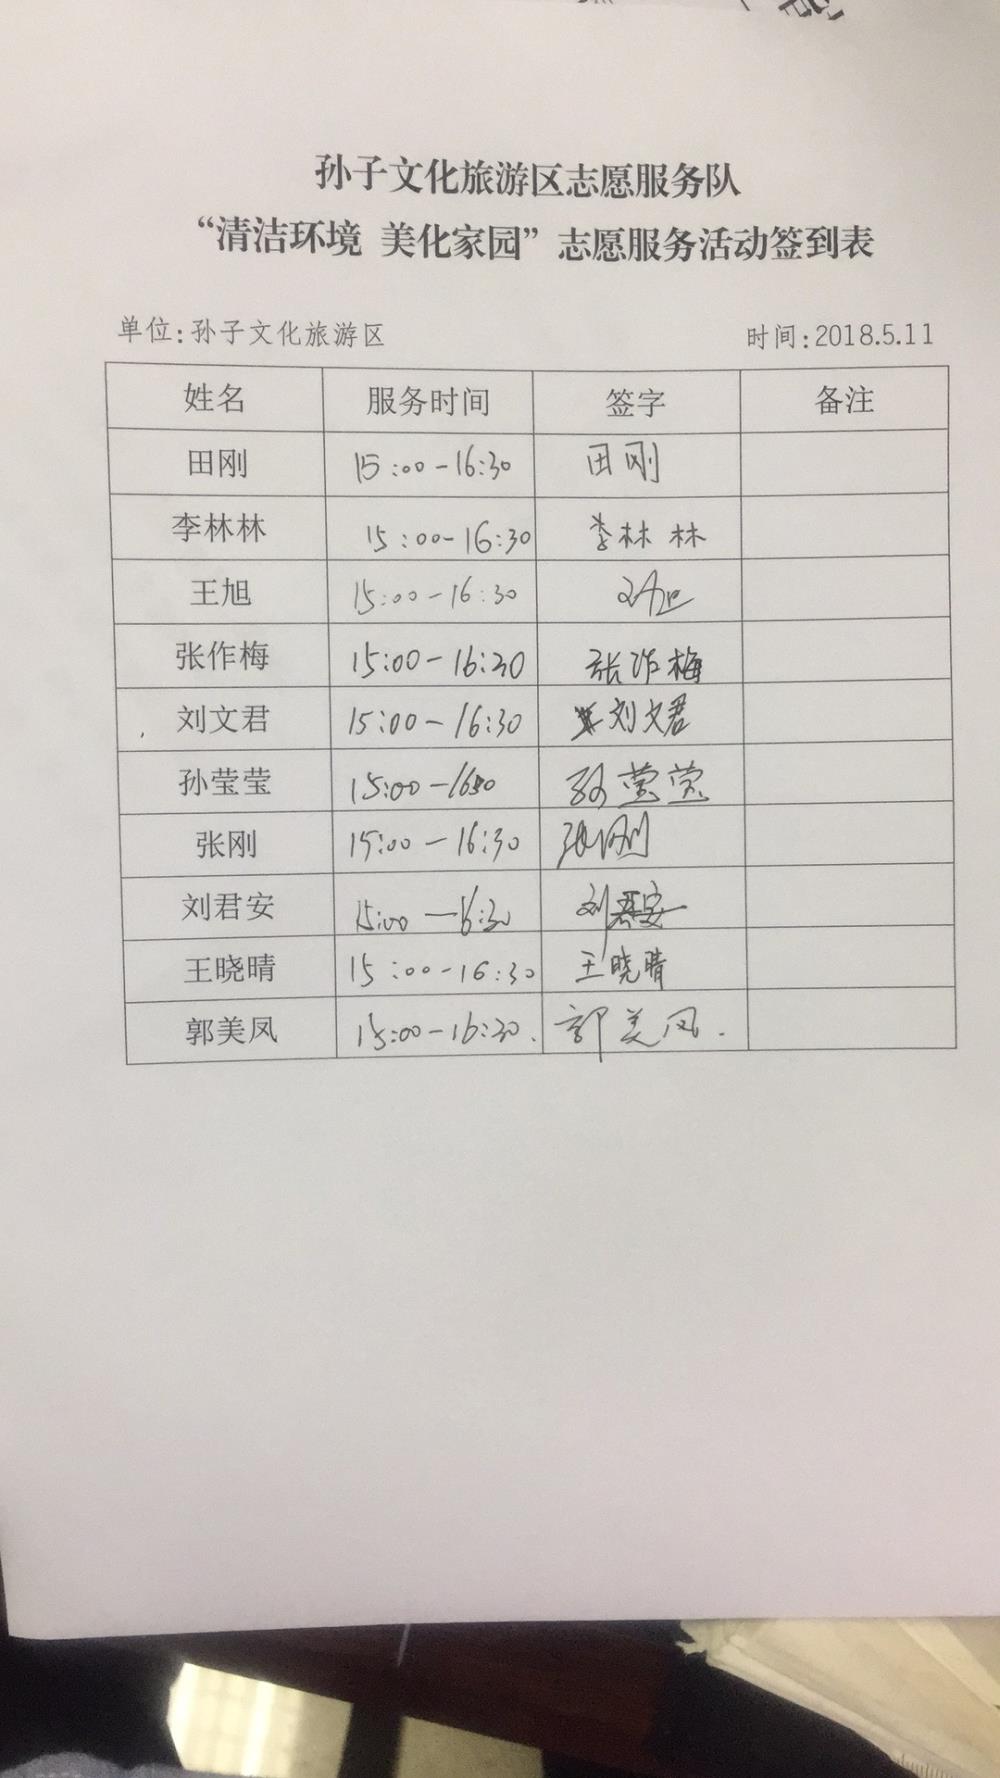 孙子文化旅游区志愿服务队
“清洁环境 美化家园”志愿服务活动签到表
单位:孙子文化旅游区 时间:2018.5.11
姓名 服务时间 签字 备注
田刚 15:00-16:30 田刚
李林林 15:00-16:30 李林林
王旭 15:00-16:30 王旭
张作梅 15:00-16:30 张作梅
刘文君 15:00-16:30 刘文君
孙莹莹 15:00-1630 孙莹莹
张刚 15:00-16:30 张刚
刘君安 15:00-16:30 刘君安
王晓晴 15:00-16:30 王晓晴
郭美凤 15:00-16:30. 郭美凤.